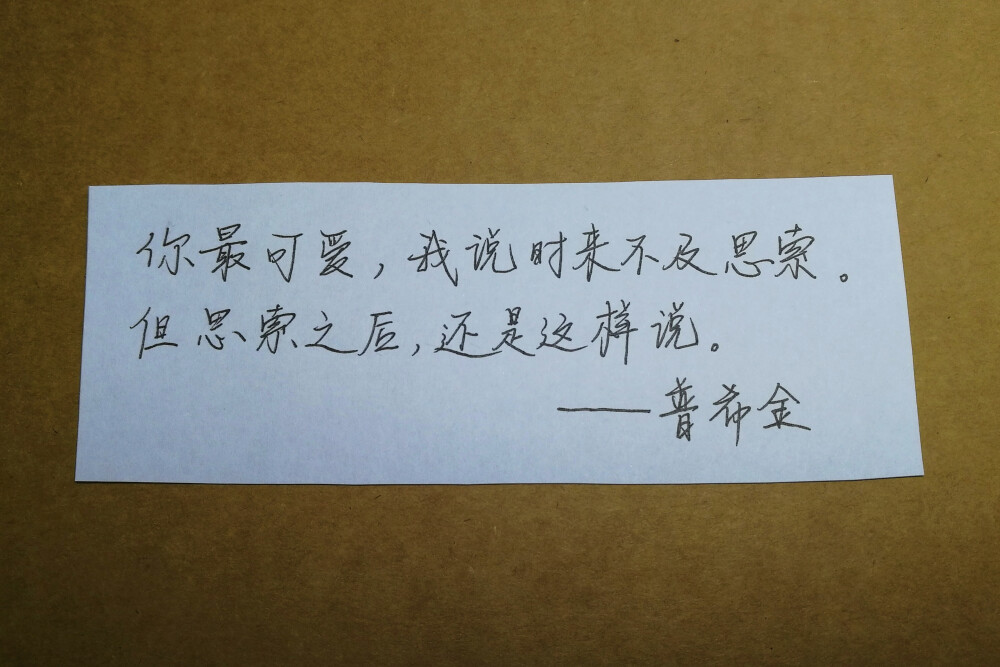 你最可爱，我说时来不及思索。
但思索之后，还是这样说。
——普希金